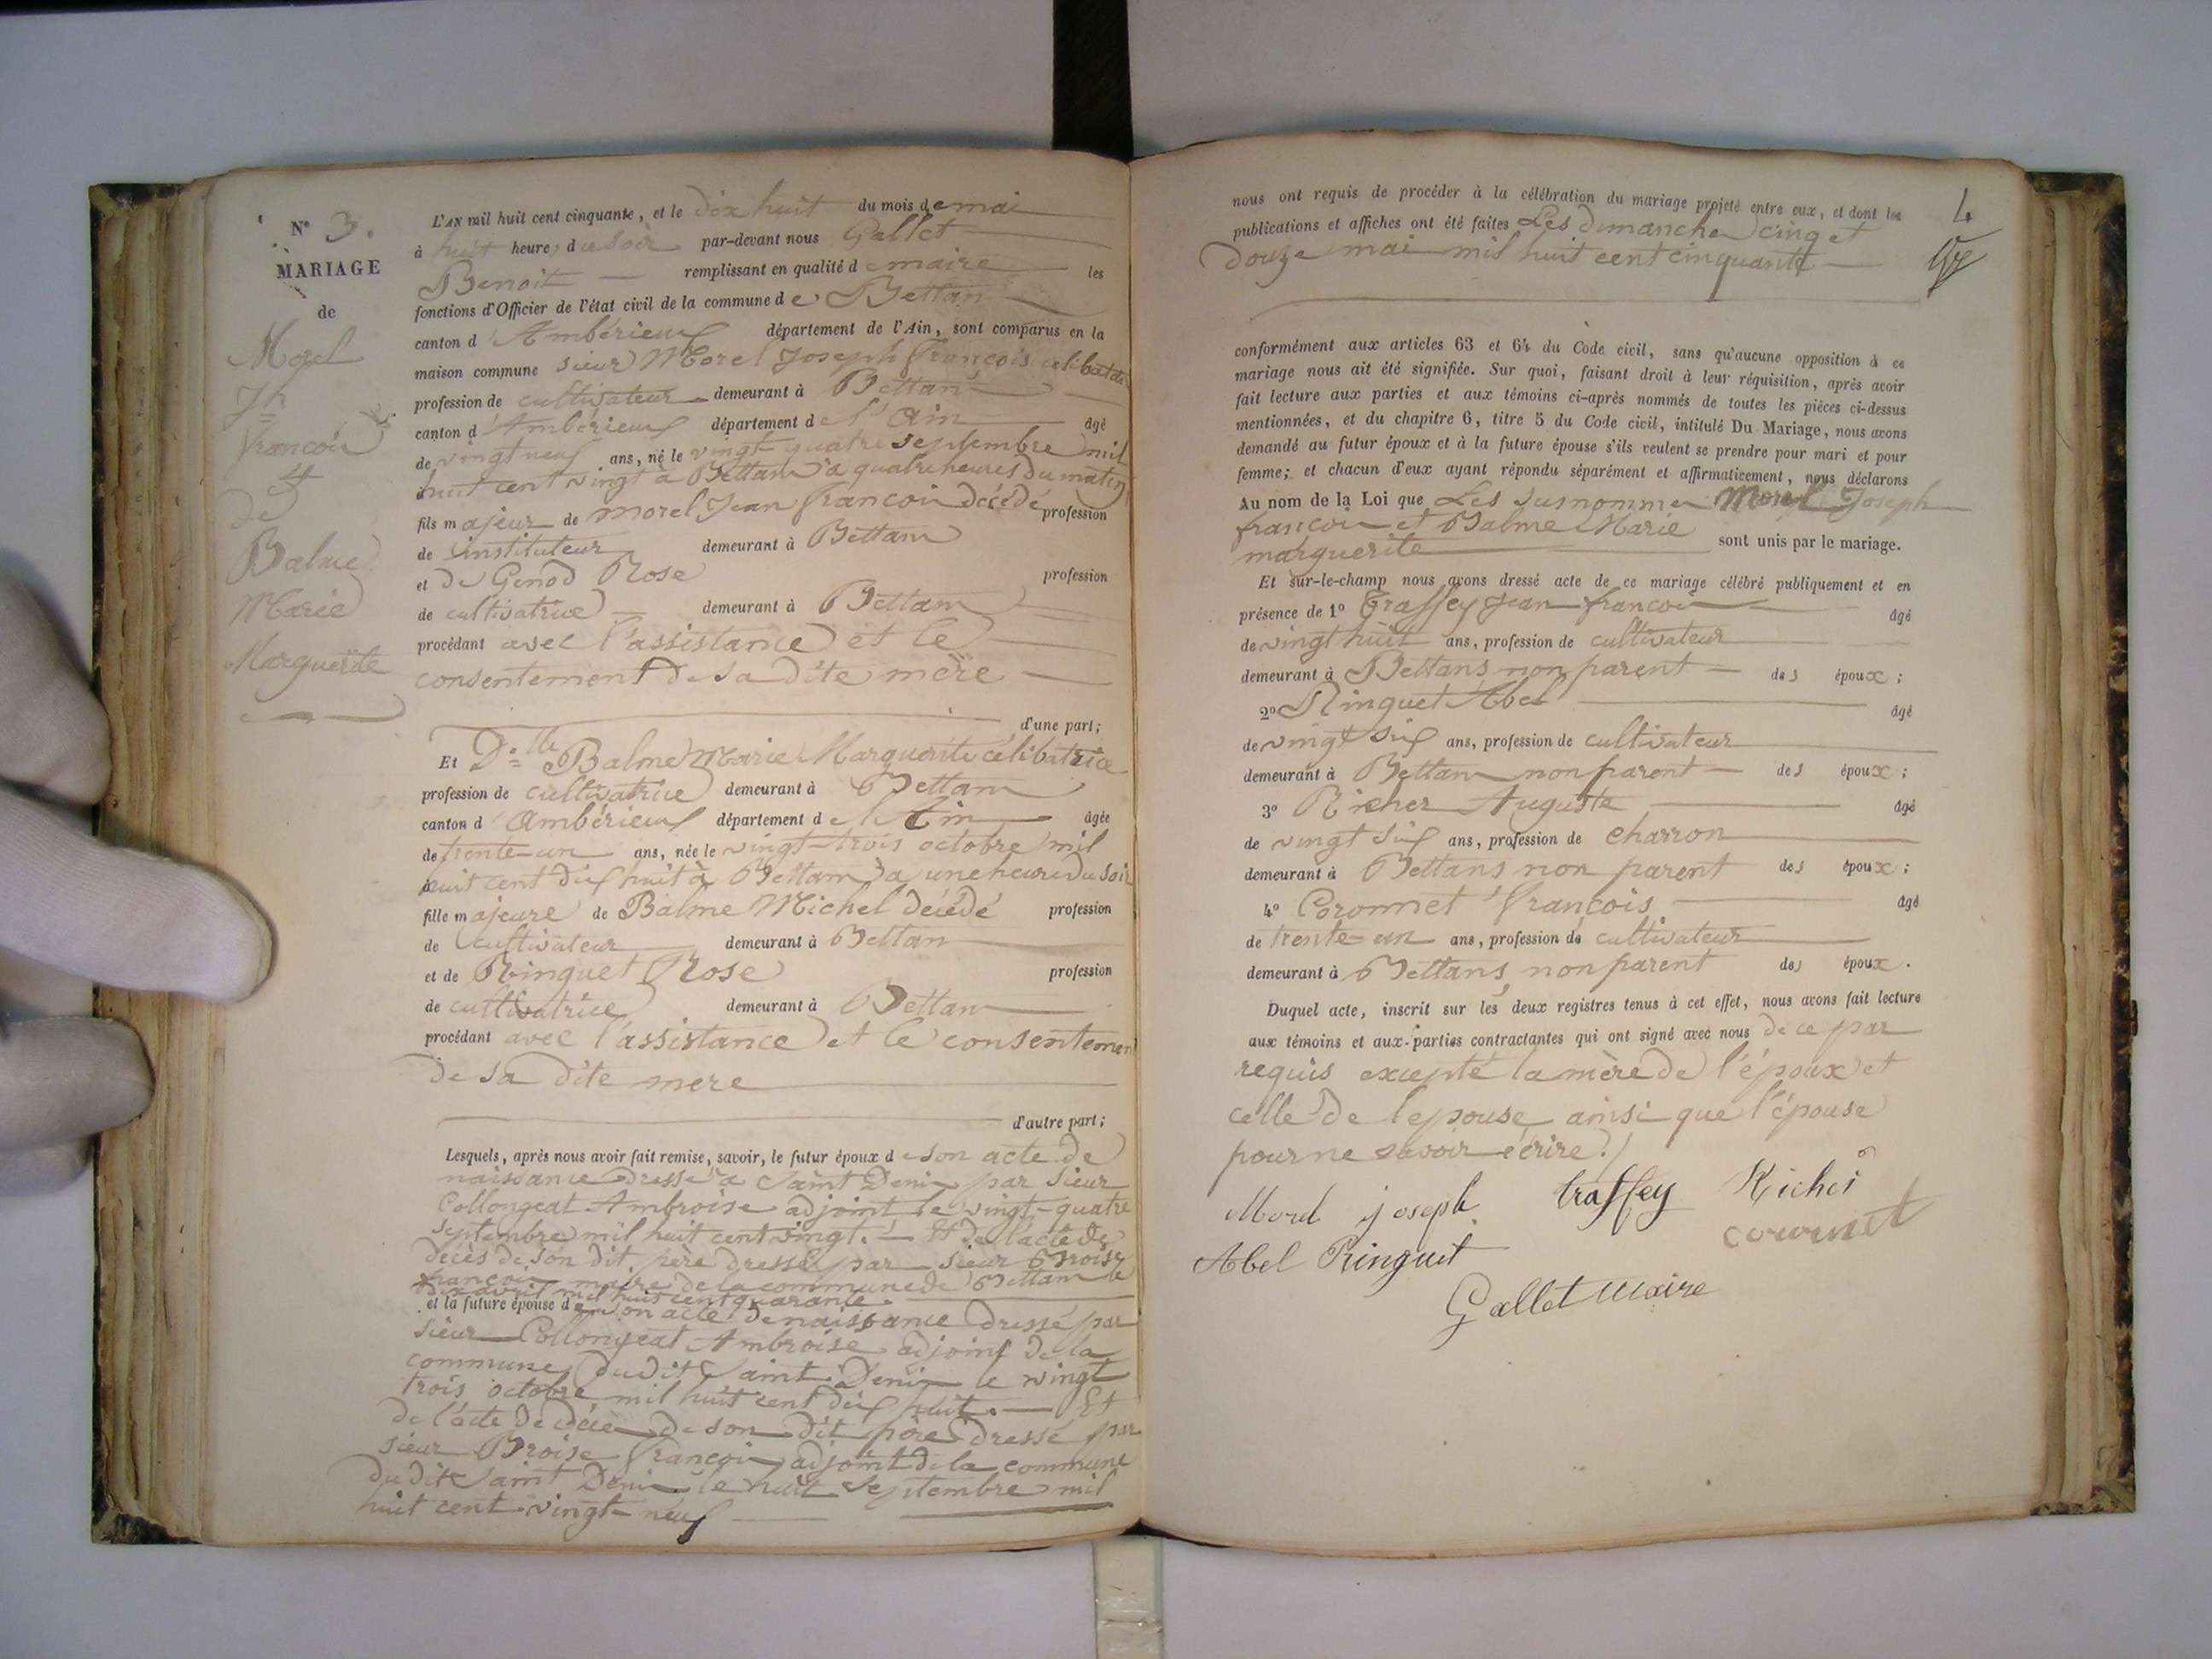 N° 3.
MARIAGE
de
Morel
Jh
François
et
de
Balme
Marie
Marguerite
L'AN mil huit cent cinquante, et le dix huit du mois de mai
à huit heures du soir par-devant nous Gallet
Benoit remplissant en qualité de maire les
fonctions d'Officier de l'état civil de la commune de Bettan
canton d'Ambérieux département de l'Ain, sont comparus en la
maison commune sieur Morel Joseph François célibataire
profession de cultivateur demeurant à Bettan
canton d'Ambérieux département de l'Ain âgé
de vingt neuf ans, né le vingt quatre septembre mil
huit cent vingt à Bettan à quatre heures du matin
fils majeur de morel Jean françois décédé profession
de instituteur demeurant à Bettan
et de Genod Rose profession
de cultivatrice demeurant à Bettan
procédant avec l'assistance et le
consentement de sa dite mère
d'une part;
Et Dlle Balme Marie Marguerite célibatrice
profession de cultivatrice demeurant à Bettan
canton d'Ambérieux département de l'Ain âgée
de trente-un ans, née le vingt-trois octobre mil
huit cent dix huit à Bettan à une heure du soir
fille majeure de Balme Michel décédé profession
de cultivateur demeurant à Bettan
et de Ringuet Rose profession
de cultivatrice demeurant à Bettan
procédant avec l'assistance et le consentement
de sa dite mere
d'autre part;
Lesquels, après nous avoir fait remise, savoir, le futur époux de son acte de
naissance dressé à Saint Denis par sieur
Collongeat Ambroise adjoint le vingt-quatre
septembre mil huit cent vingt. Et de l'acte de
décès de son dit père dressé par sieur Broise
françois maire de la commune de Bettan le
mil huit cent quarante
et la future épouse de son acte de naissance dressé par
sieur Collongeat Ambroise adjoint de la
commune dudit Saint Denis le vingt
trois octobre mil huit cent dix huit. Et
de l'acte de décès de son dit père dressé par
sieur Broise françois adjoint de la commune
dudit Saint Denis le huit septembre mil
huit cent vingt-neuf
4
nous ont requis de procéder à la célébration du mariage projeté entre eux, et dont les
publications et affiches ont été faites Les dimanches cinq et
douze mai mil huit cent cinquante
conformément aux articles 63 et 64 du Code civil, sans qu'aucune opposition à ce
mariage nous ait été signifiée. Sur quoi, faisant droit à leur réquisition, après avoir
fait lecture aux parties et aux témoins ci-après nommés de toutes les pièces ci-dessus
mentionnées, et du chapitre 6, titre 5 du Code civil, intitulé Du Mariage, nous avons
demandé au futur époux et à la future épouse s'ils veulent se prendre pour mari et pour
femme; et chacun d'eux ayant répondu séparément et affirmativement, nous déclarons
Au nom de la Loi que Les susnommes Morel Joseph
françois et Balme Marie
marguerite sont unis par le mariage.
Et sur-le-champ nous avons dressé acte de ce mariage célébré publiquement et en
présence de 1° Traffey Jean francois âgé
de vingt huit ans, profession de cultivateur
demeurant à Bettans non parent des époux;
2° Ringuet Abel âgé
de vingt six ans, profession de cultivateur
demeurant à Bettan non parent des époux;
3° Richer Auguste âgé
de vingt six ans, profession de charron
demeurant à Bettans non parent des époux;
4° Coronnet François âgé
de trente-un ans, profession de cultivateur
demeurant à Bettans, non parent des époux.
Duquel acte, inscrit sur les deux registres tenus à cet effet, nous avons fait lecture
aux témoins et aux parties contractantes qui ont signé avec nous de ce par
requis excepté la mère de l'époux et
celle de lepouse ainsi que l'épouse
pour ne savoir écrire.
Morel joseph traffey Richer
Abel Ringuet
Gallet maire